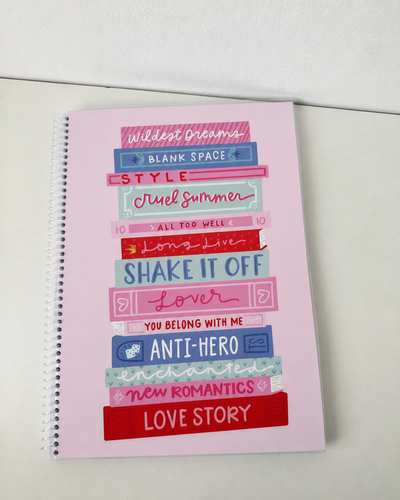 Wildest Dreams
BLANK SPACE
STYLE
Cruel Summer
10 ALL TOO WELL 10
Long Live
SHAKE IT OFF
Lover
YOU BELONG WITH ME
ANTI-HERO TS
enchanted
new ROMANTICS
LOVE STORY